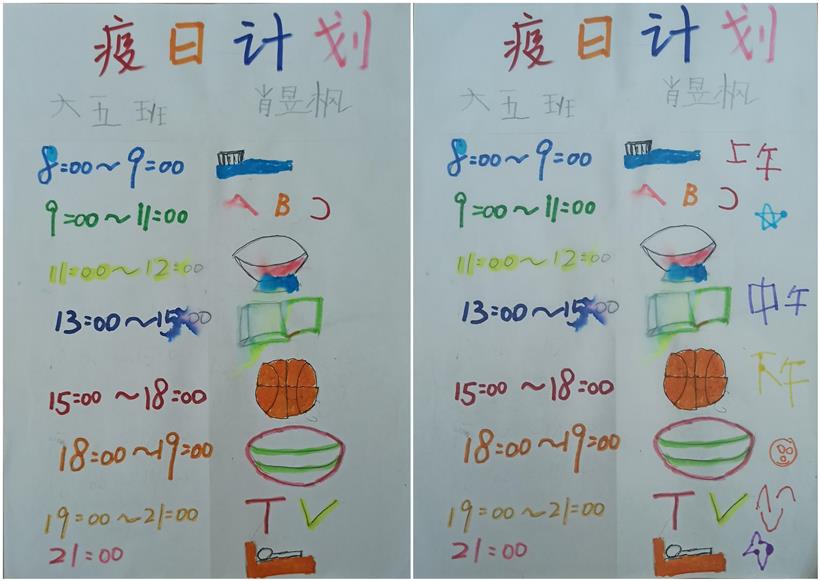 疫日计划
六五班 肖昱枫
8:00～9:00
9:00～11:00 A B C
11:00～12:00
13:00～15:00
15:00～18:00
18:00～19:00
19:00～21:00 T V
21:00
疫日计划
六五班 肖昱枫
8:00～9:00 上午
9:00～11:00 A B C
11:00～12:00
13:00～15:00 中午
15:00～18:00 下午
18:00～19:00
19:00～21:00 T V
21:00